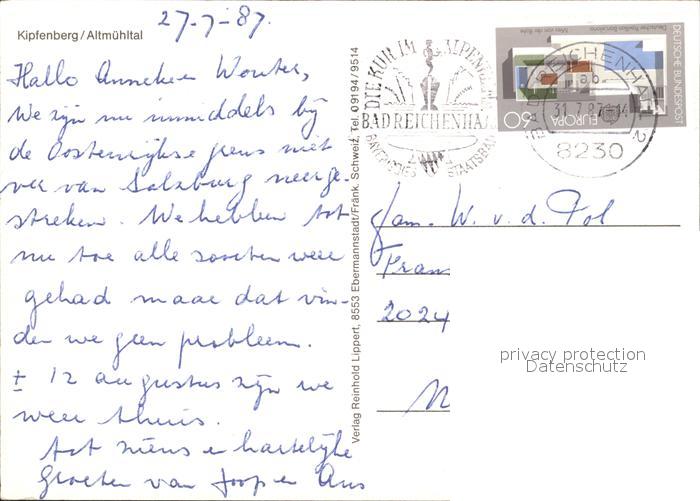 27-7-87.
Kipfenberg/Altmühltal
Hallo Anneke en Wouter,
We zijn nu inmiddels bij
de Oostenrijkse grens niet
ver van Salzburg neerge-
streken. We hebben tot
nu toe alle soorten weer
gehad maar dat vin-
den we geen probleem.
± 12 augustus zijn we
weer thuis.
tot ziens en hartelijke
groeten van Joop en Ans
Verlag Reinhold Lippert, 8553 Ebermannstadt/Fränk. Schweiz, Tel. 09194/9514
DIE KUR IM ALPEN
BAD REICHENHA
BAYERISCHES STAATSBAD
BAD REICHENHALL 2
ab
31.7.87
8230
DEUTSCHE BUNDESPOST
Deutscher Pavillon Barcelona
Mies van der Rohe
EUROPA
60
fam. W. v. d. Pol
Fran
2024
privacy protection
Datenschutz